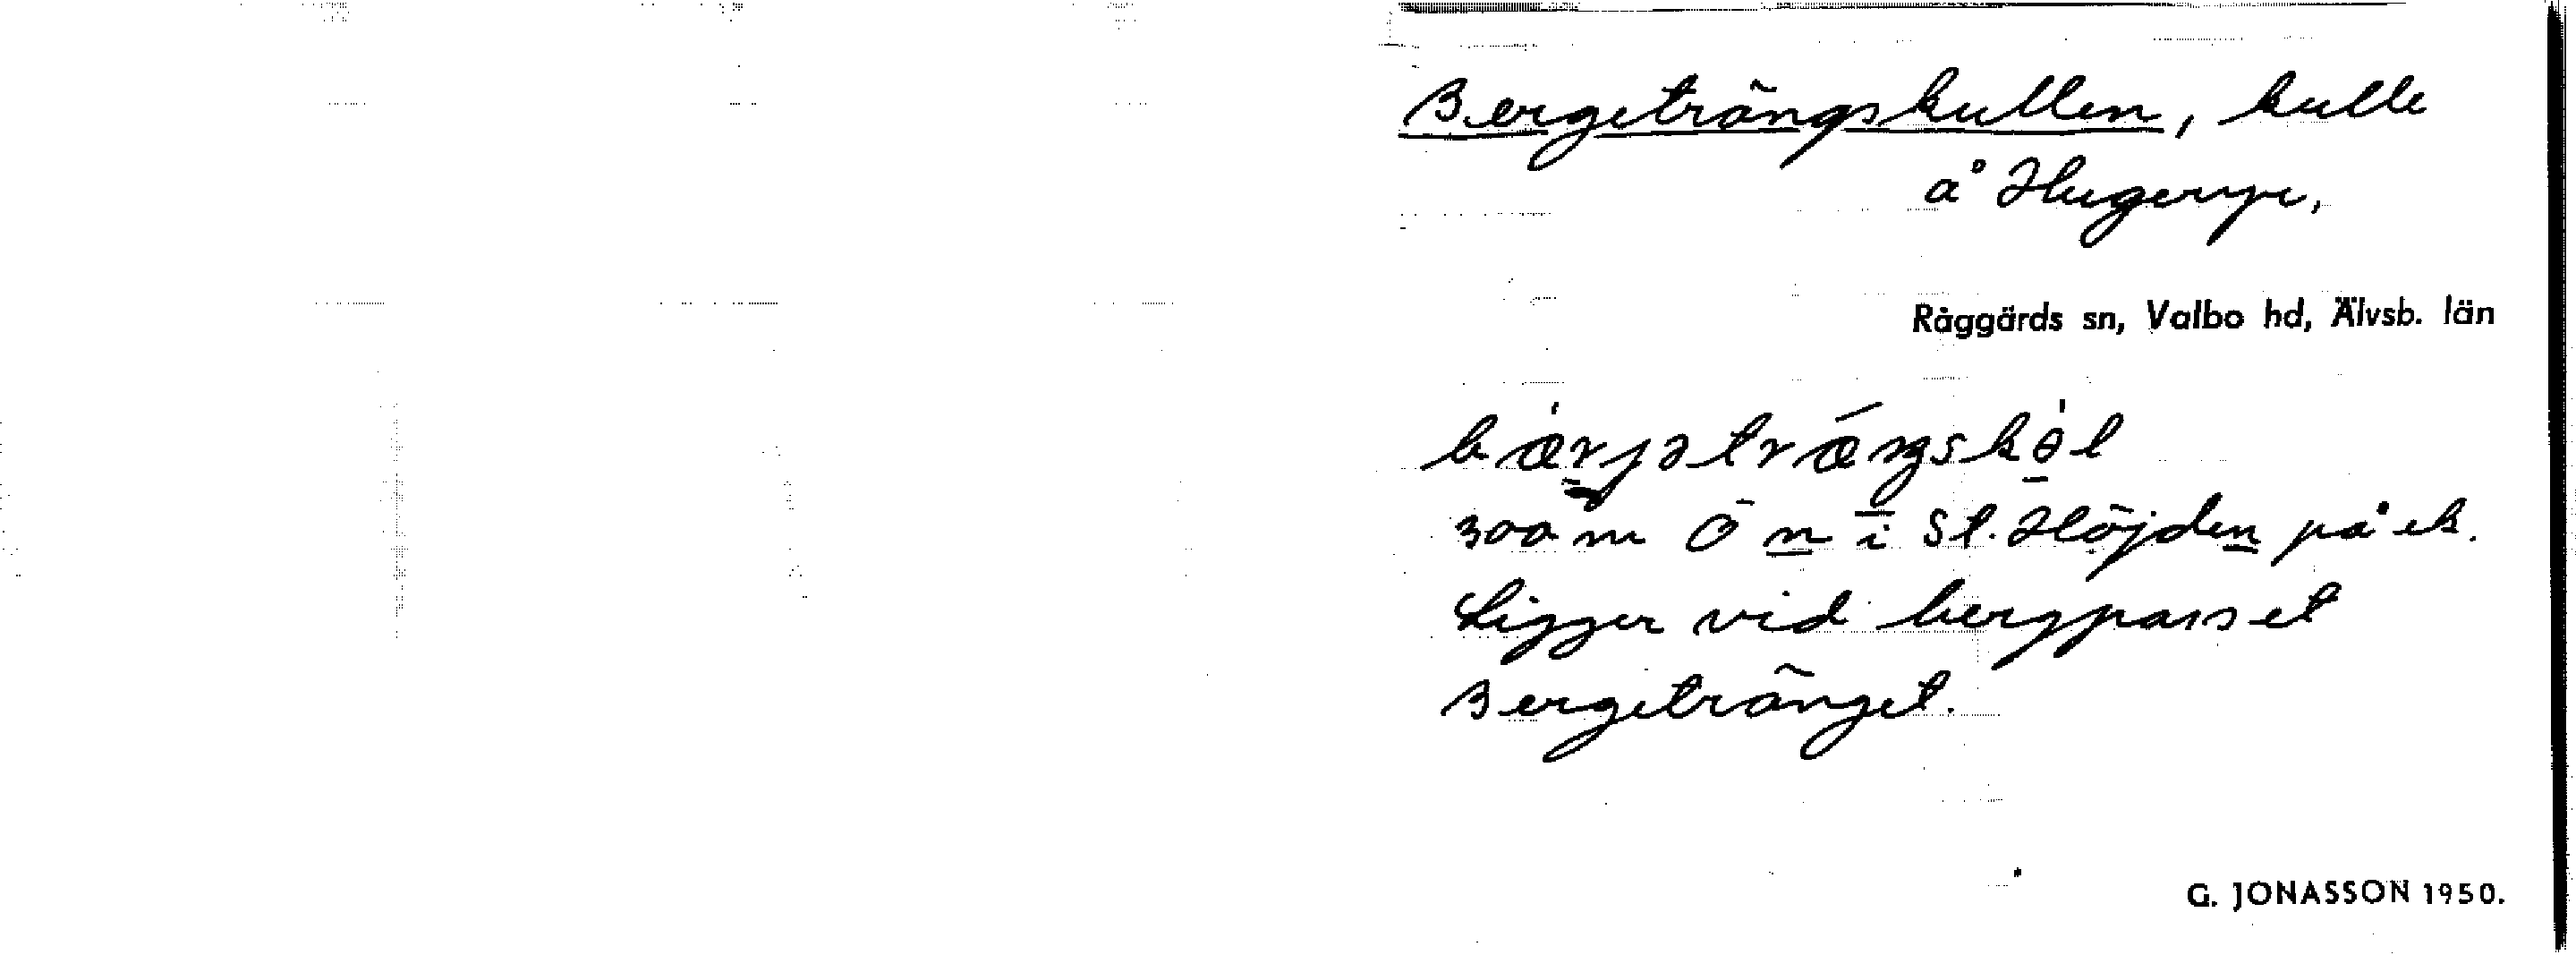 Bergeträngskullen, kulle
å Hugeryr,
Råggärds sn, Valbo hd, Älvsb. län
bær̠jətræŋskə̠l
300 m Ö n̲ i St. Höjden̲ på ek.
Ligger vid bergpasset
Bergetränget.
G. JONASSON 1950.